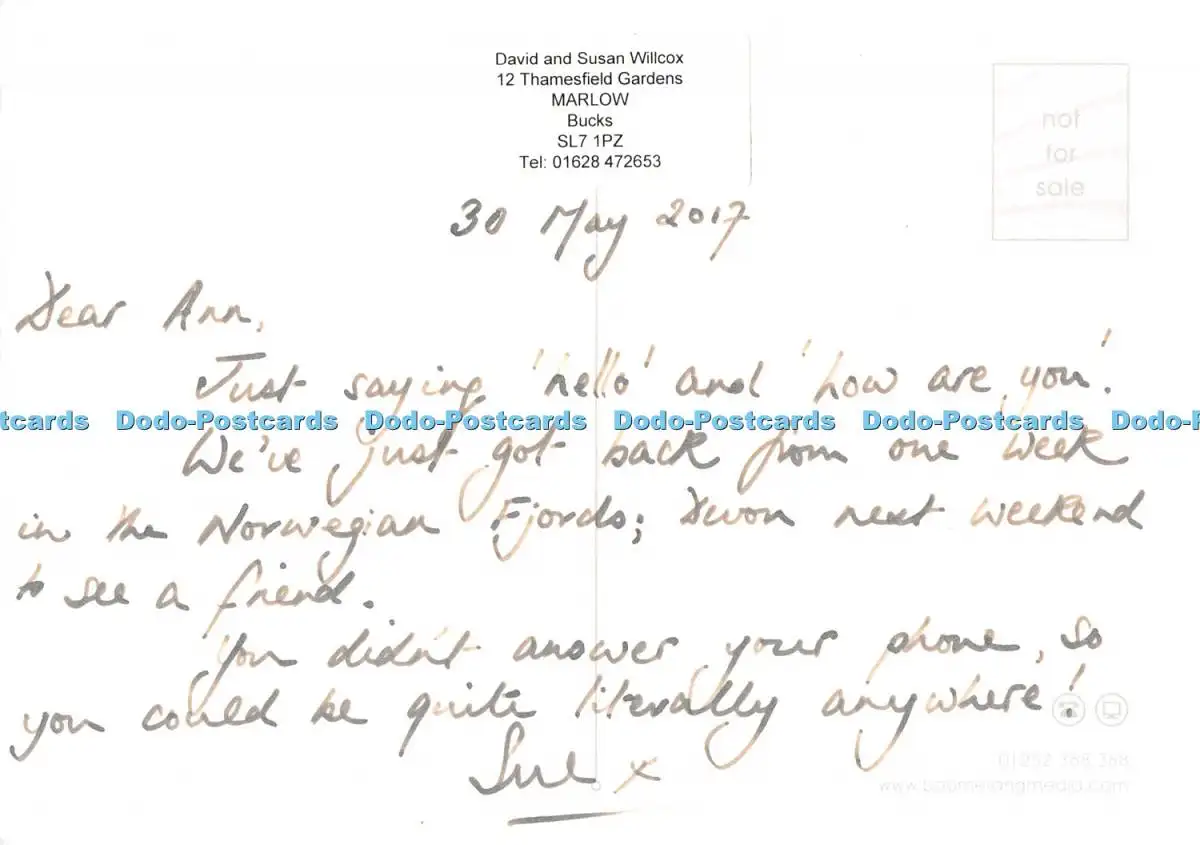 David and Susan Willcox
12 Thamesfield Gardens
MARLOW
Bucks
SL7 1PZ
Tel: 01628 472653
not
for
sale
30 May 2017
Dear Ann,
Just saying 'hello' and 'how are you'!
tcards Dodo-Postcards Dodo-Postcards Dodo-Postcards Dodo-Postcards Dodo-P
We've just got back from one week
in the Norwegian Fjords; Devon next weekend
to see a friend.
You didn't answer your phone, so
you could be quite literally anywhere!
Sue x
01252 368 368
www.boomerangmedia.com